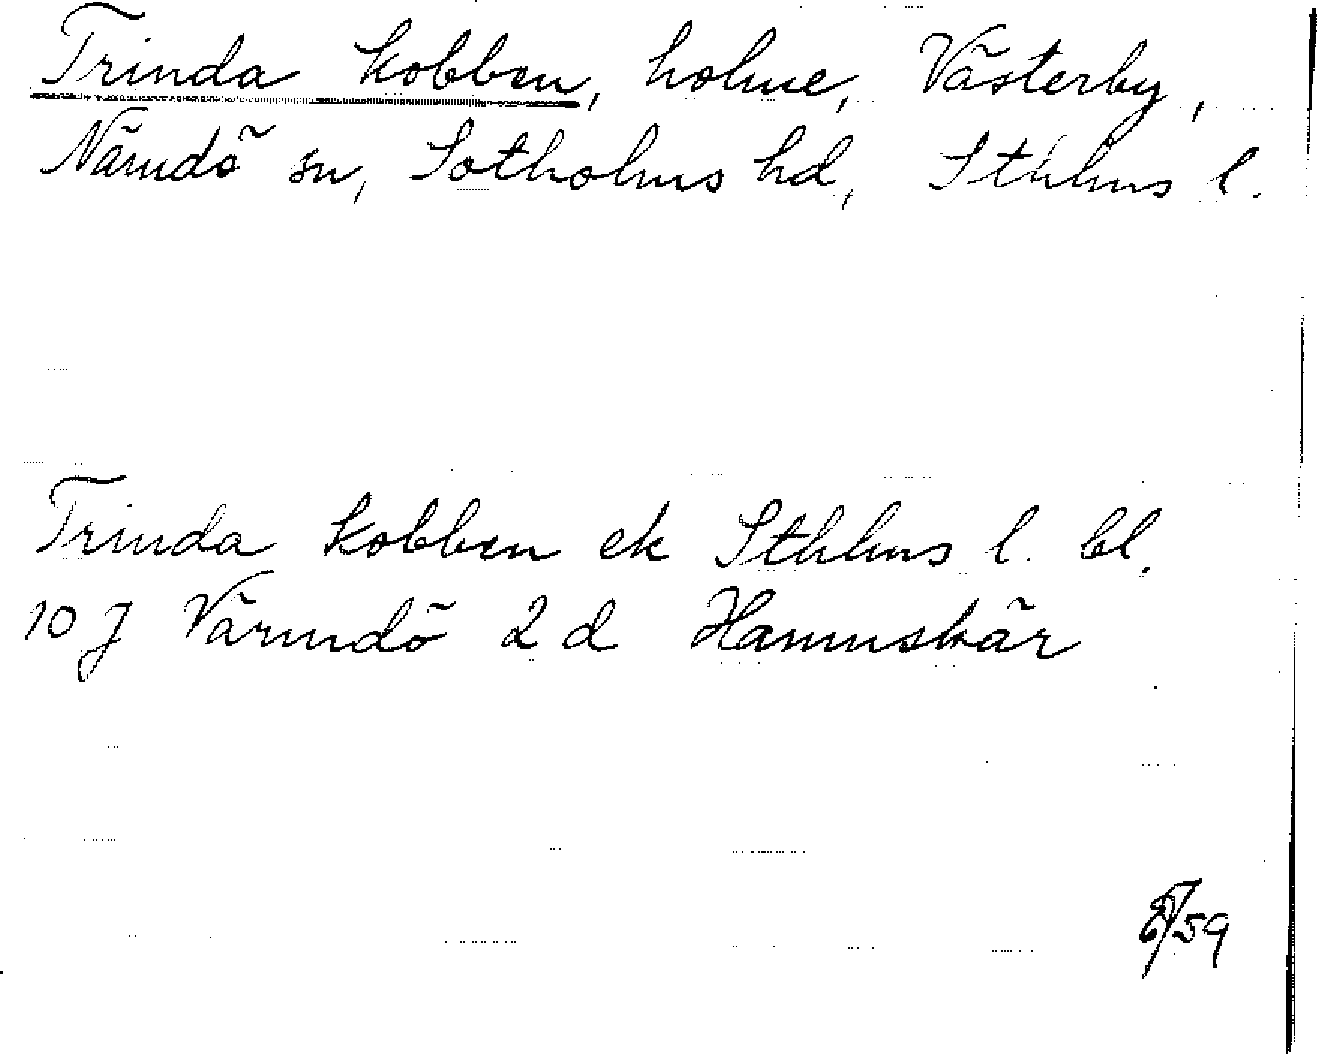 Trinda kobben, holme, Västerby,
Nämdö sn, Sotholms hd, Sthlms l.
Trinda kobben ek Sthlms l. bl.
10 J Värmdö 2 d Hamnskär
/59